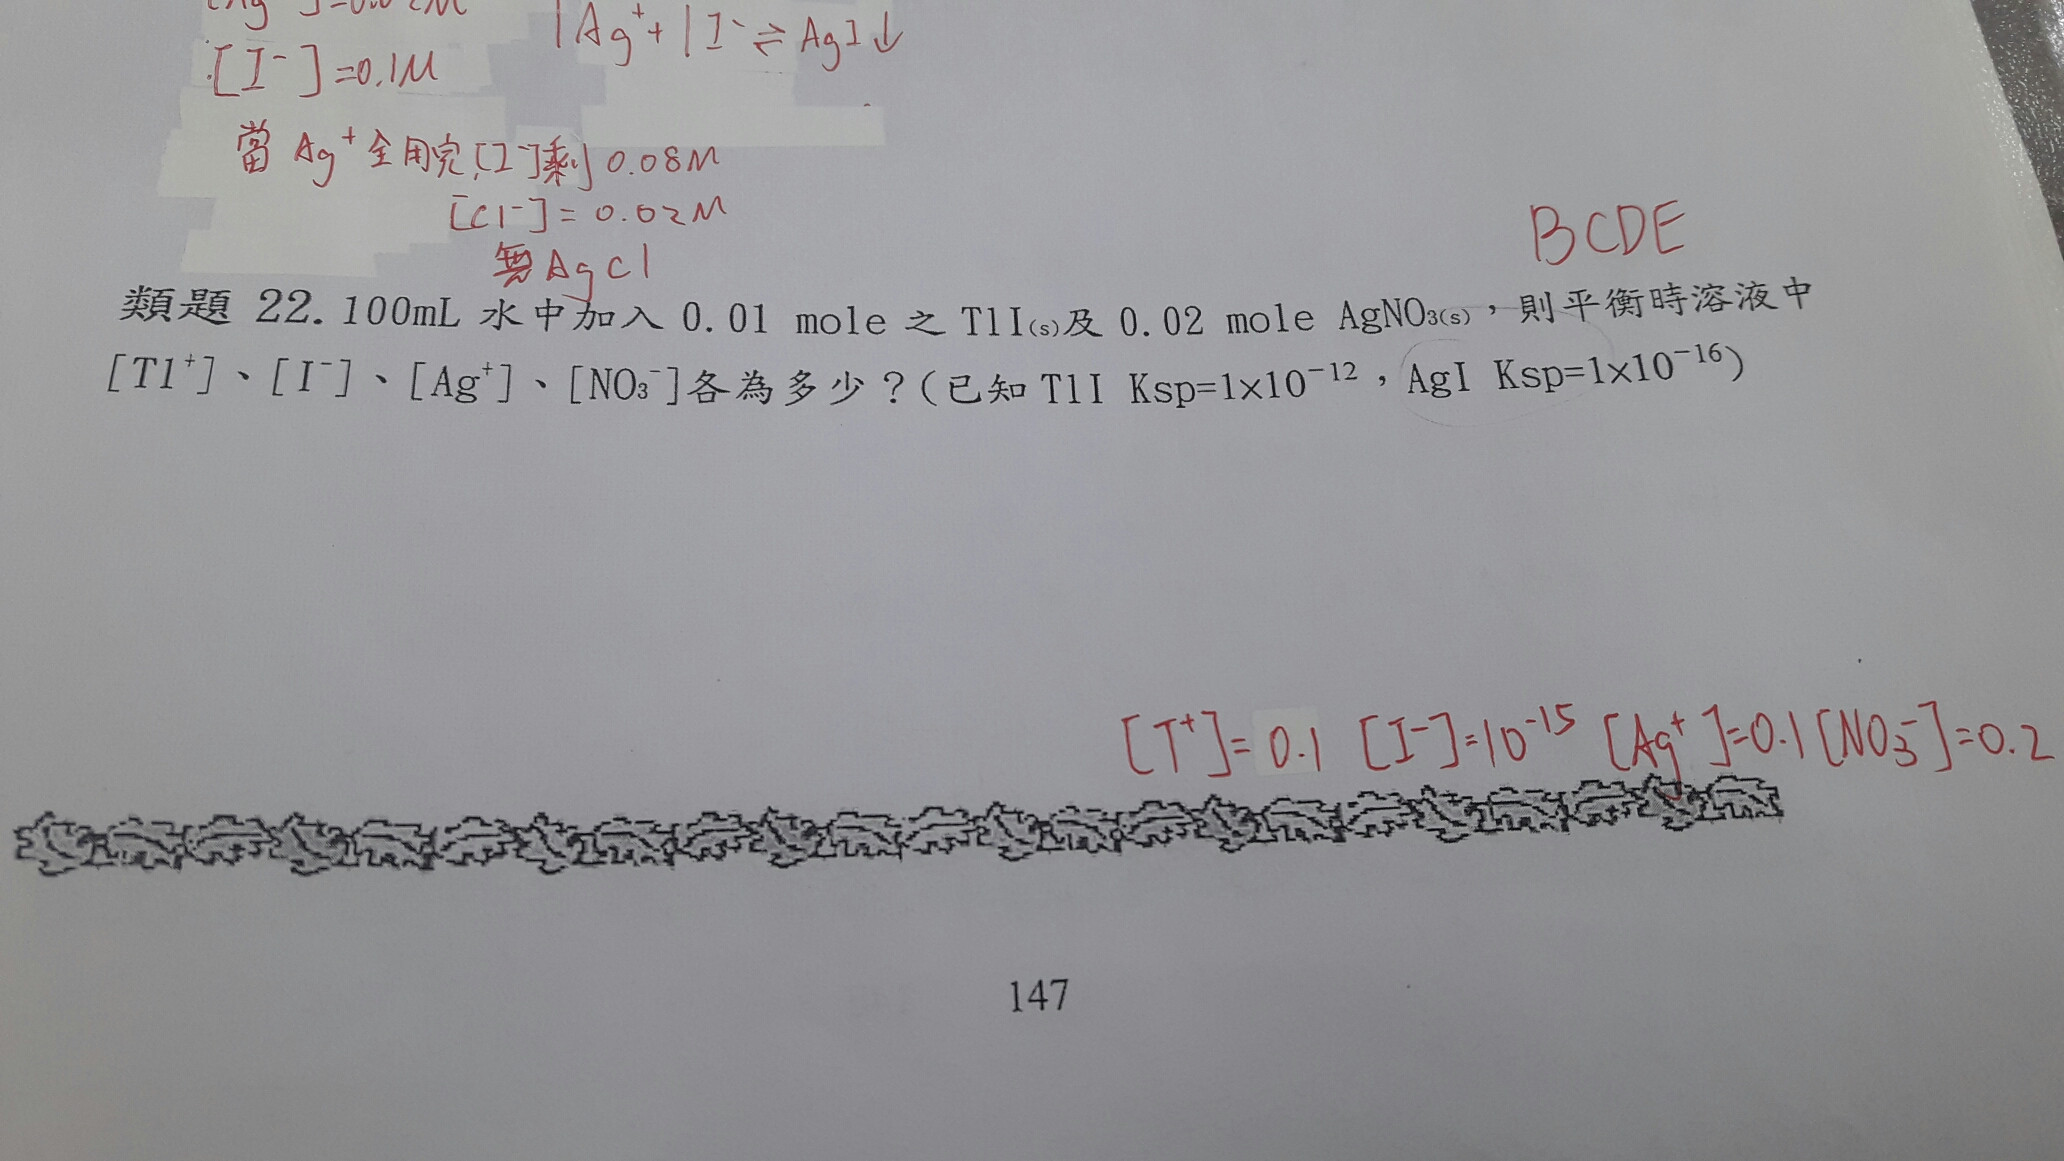 [I⁻]=0.1M
1Ag⁺+1I⁻⇌AgI↓
當Ag⁺全用完,[I⁻]剩0.08M
[Cl⁻]=0.02M
無AgCl
BCDE
類題 22. 100mL 水中加入 0.01 mole 之 TlI(s)及 0.02 mole AgNO₃(s)，則平衡時溶液中
[Tl⁺]、[I⁻]、[Ag⁺]、[NO₃⁻]各為多少？(已知 TlI Ksp=1×10⁻¹²，AgI Ksp=1×10⁻¹⁶)
[T⁺]=0.1 [I⁻]=10⁻¹⁵ [Ag⁺]=0.1 [NO₃⁻]=0.2
147